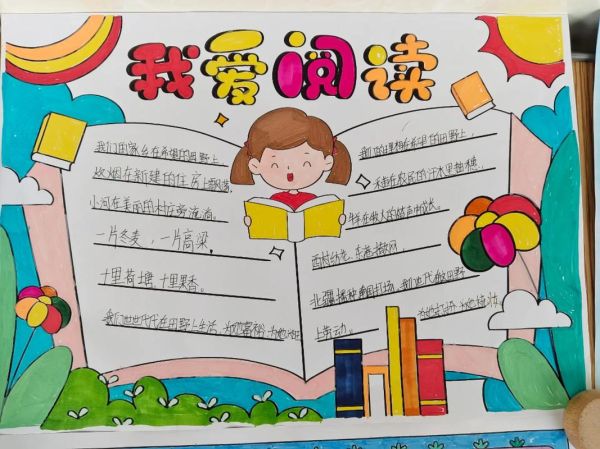 我爱阅读
我们的家乡在希望的田野上
炊烟在新建的住房上飘荡
小河在美丽的村庄旁流淌
一片冬麦，一片高粱，
十里荷塘，十里果香。
我们世世代代在田野上生活
我们的理想在希望的田野上
禾苗在农民的汗水里抽穗，
牛羊在牧人的笛声中成长。
西村纺花，东港撒网
北疆播种南国打场 我们世世代代在田野
上劳动。